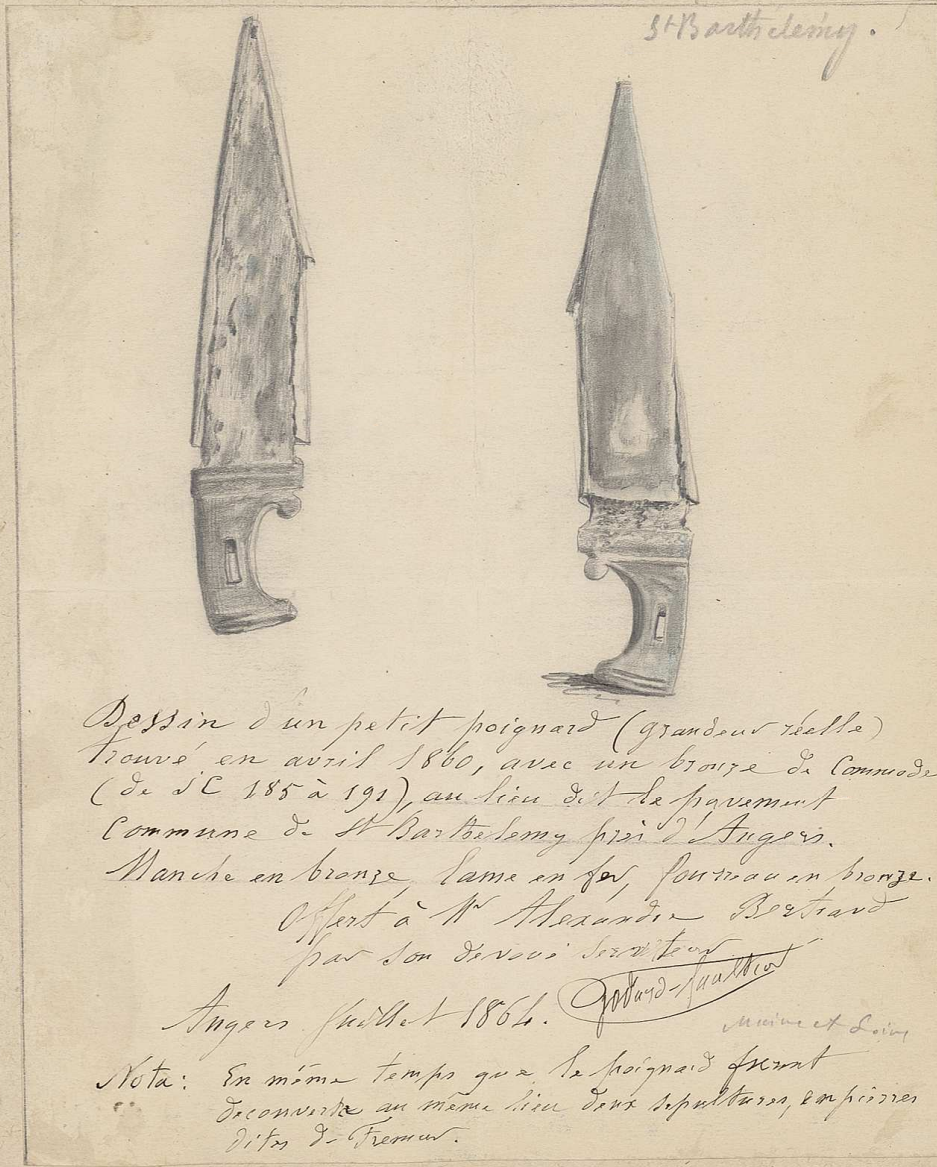 St Barthelemy.
Dessin d'un petit poignard (grandeur réelle)
trouvé en avril 1860, avec un bronze de Commode
(de J C 185 à 191), au lieu dit le pavement
Commune de St Barthelemy près d'Angers.
Manche en bronze, lame en fer, fourreau en bronze.
Offert à Mr Alexandre Bertrand
par son dévoué serviteur
Godard-Faultrier
Angers Juillet 1864.
Maine et Loire
Nota: En même temps que le poignard furent
decouverts au même lieu deux sepultures, en pierres
dites de Fremur.